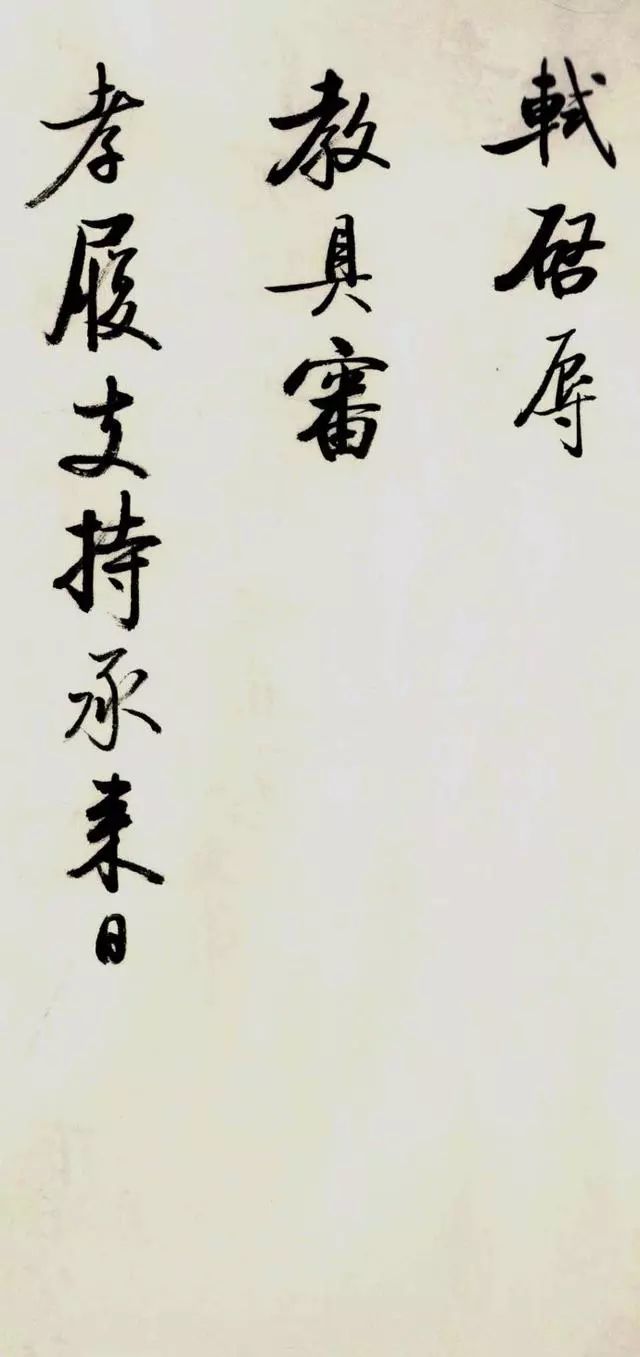 軾啓辱
教具審
孝履支持承来日